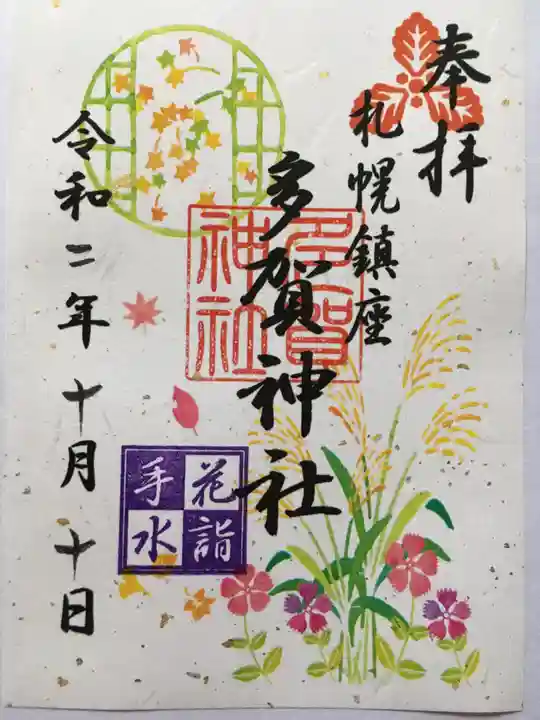 奉拝
札幌鎮座
多賀神社
多賀
神社
花詣
手水
令和二年十月十日